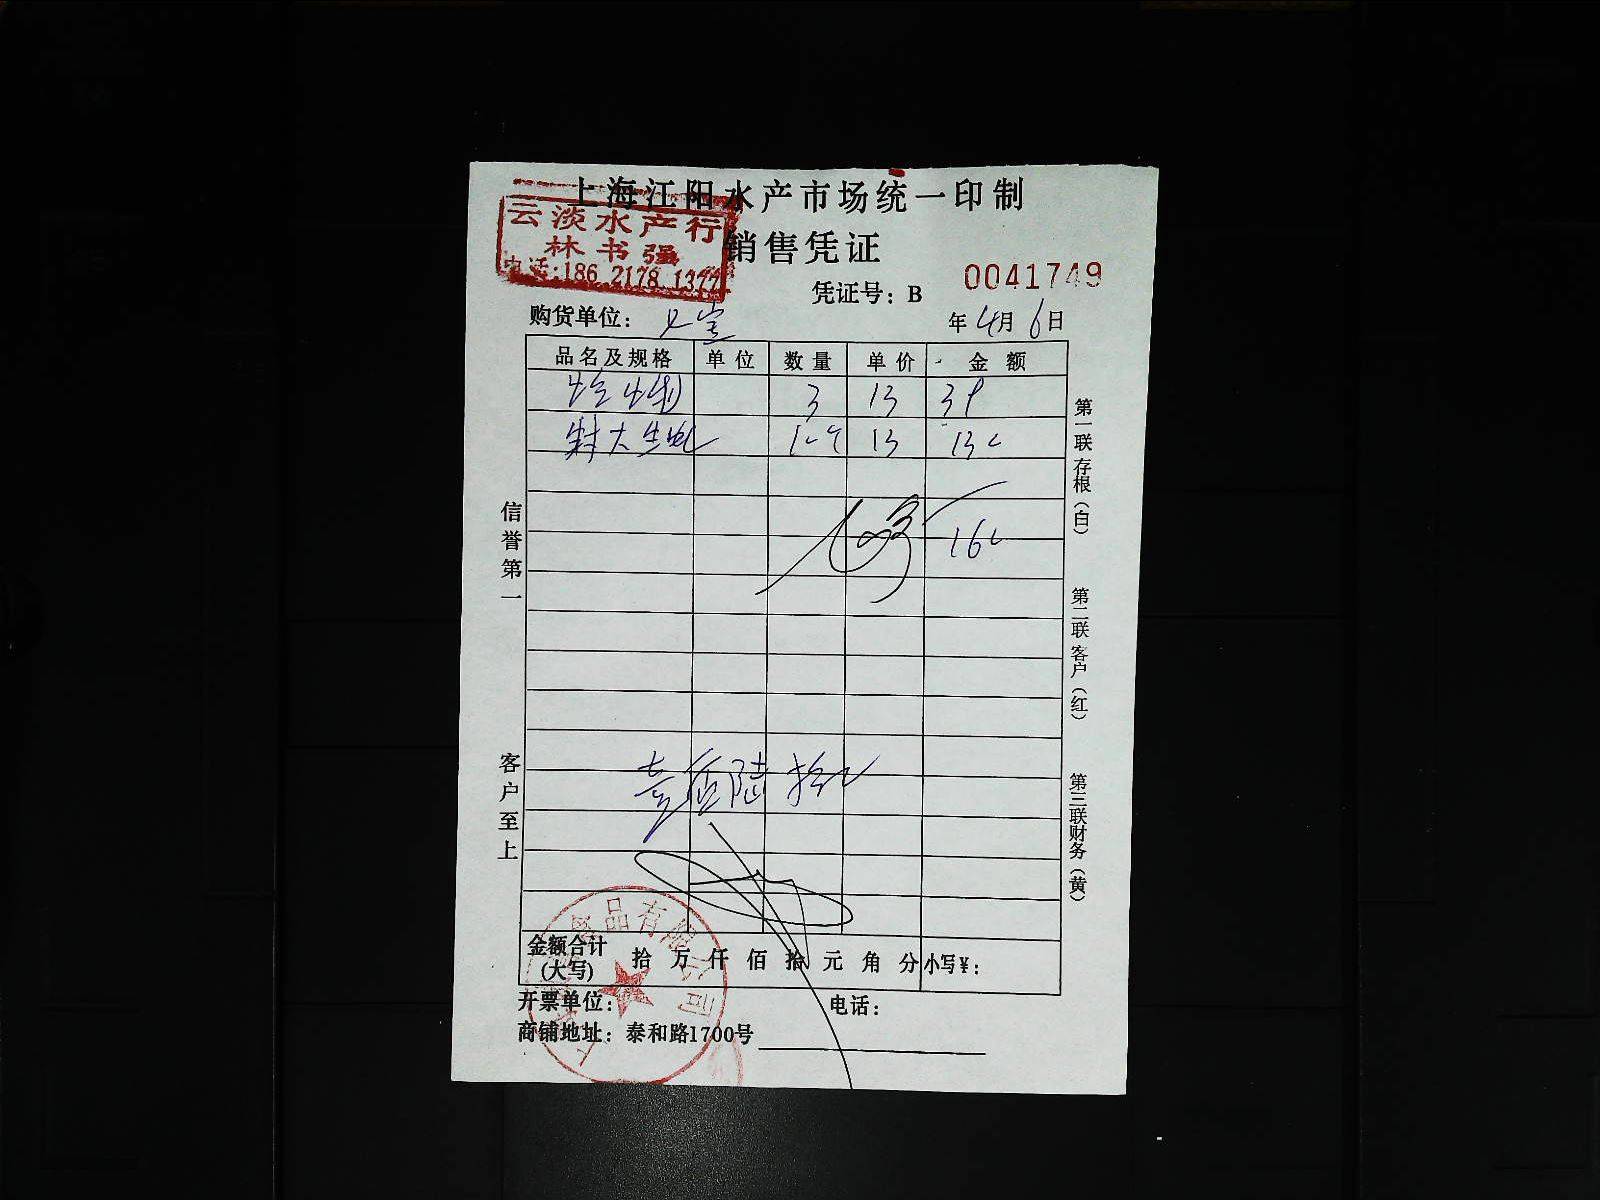 上海江阳水产市场统一印制
云淡水产行
林书强
电话:186 2178 1377
销售凭证
凭证号：B 0041749
购货单位：
年 4月 6日
品名及规格 单位 数量 单价 金额
3 13 39
特大生蚝 13
壹佰陆拾
金额合计
(大写)
拾 万 仟 佰 拾 元 角 分 小写¥：
开票单位：
电话：
商铺地址：泰和路1700号
信誉第一
客户至上
第一联 存根（白）
第二联 客户（红）
第三联 财务（黄）
品有限公司